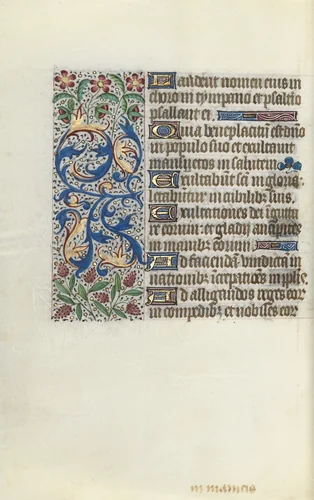 Laudent nomen eius in
choro in tympano et psalterio
psallant ei.
Quia beneplacitū est dño
in populo suo et exultauit
mansuetos in salutem
Exultabūt sāti in gloria
letabuntur in cubilibus suis.
Exultationes dei in guttu
re eorum: et gladij ancipites
in manibus eorum
Ad faciendā vindictam in
nationibus increpationes in pplis
Ad alligandos reges eor
in compedibus et nobiles eor